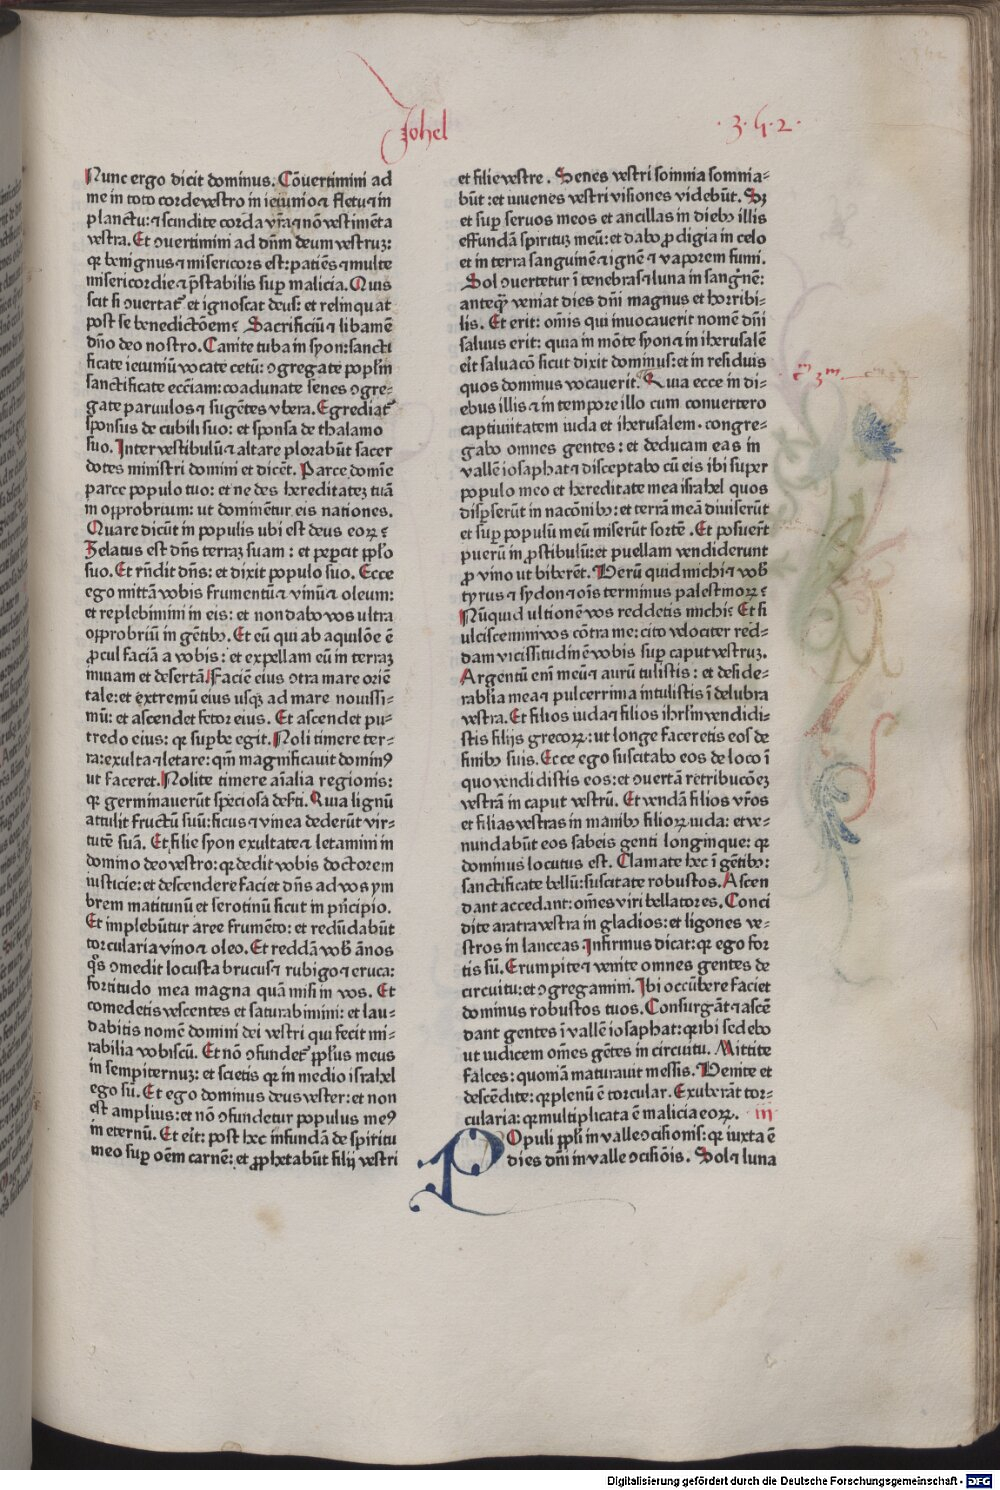 Johel
.3.4.2.
Nunc ergo dicit dominus. Cōuertimini ad
me in toto corde vestro in ieiunio ⁊ fletu ⁊ in
planctu: ⁊ scindite corda vr̄a ⁊ nō vestimēta
vestra. Et ꝯuertimini ad dn̄m deum vestruꝫ:
qꝛ benignus ⁊ misericors est: patiēs ⁊ multe
misericordie ⁊ p̄stabilis suꝑ malicia. Quis
scit si ꝯuertat᷑ et ignoscat deus: et relinquat
post se benedictōem? Sacrificiū ⁊ libamē
dn̄o deo nostro. Canite tuba in syon: sancti
ficate ieiuniū vocate cetū: ꝯgregate popl'm
sanctificate ecc̄iam: coadunate senes ꝯgre⸗
gate paruulos ⁊ sugētes vbera. Egrediat᷑
sponsus de cubili suo: et sponsa de thalamo
suo. Inter vestibulū ⁊ altare plorabūt sacer
dotes ministri domini et dicēt. Parce domīe
parce populo tuo: et ne des hereditateꝫ tuā
in opprobrium: ut dominētur eis nationes.
Quare dicūt in populis ubi est deus eoꝝ?
Zelatus est dn̄s terraꝫ suam: et peꝑcit ppl'o
suo. Et rn̄dit dn̄s: et dixit populo suo. Ecce
ego mittā vobis frumentū ⁊ vinū ⁊ oleum:
et replebimini in eis: et non dabo vos ultra
opprobriū in gētibꝫ. Et eū qui ab aquilōe ē
ꝓcul faciā a vobis: et expellam eū in terraꝫ
inuiam et desertā. Faciē eius ꝯtra mare oriē
tale: et extremū eius usqꝫ ad mare nouissi⸗
mū: et ascendet fetor eius. Et ascendet pu⸗
tredo eius: qꝛ suꝑbe egit. Noli timere ter⸗
ra: exulta ⁊ letare: qm̄ magnificauit dominꝰ
ut faceret. Nolite timere aīalia regionis:
qꝛ germinauerūt speciosa defti. Quia lignū
attulit fructū suū: ficus ⁊ vinea dederūt vir⸗
tutē suā. Et filie syon exultate ⁊ letamini in
domino deo vestro: qꝛ dedit vobis doctorem
iusticie: et descendere faciet dn̄s ad vos ym
brem matitunū et serotinū sicut in pn̄cipio.
Et implebūtur aree frumēto: et redūdabūt
torcularia vino ⁊ oleo. Et reddā vob̄ ānos
qͦs ꝯmedit locusta brucus ⁊ rubigo ⁊ eruca:
fortitudo mea magna quā misi in vos. Et
comedetis vescentes et saturabimini: et lau⸗
dabitis nomē domini dei vestri qui fecit mi⸗
rabilia vobiscū. Et nō ꝯfundet᷑ ppl'us meus
in sempiternuꝫ: et scietis qꝛ in medio israhel
ego sū. Et ego dominus deus vester: et non
est amplius: et nō ꝯfundetur populus meꝰ
in eternū. Et eīt: post hec infundā de spiritu
meo suꝑ oēm carnē: et ꝓphetabūt filij vestri
et filie vestre. Senes vestri somnia somnia⸗
būt: et iuuenes vestri visiones videbūt. Sꝫ
et suꝑ seruos meos et ancillas in diebꝫ illis
effundā spirituꝫ meū: et dabo ꝓdigia in celo
et in terra sanguinē ⁊ ignē ⁊ vaporem fumi.
Sol ꝯuertetur ī tenebras ⁊ luna in sang'nē:
anteqꝫ veniat dies dn̄i magnus et horribi⸗
lis. Et erit: om̄is qui inuocauerit nomē dn̄i
saluus erit: quia in mōte syon ⁊ in iherusalē
eīt saluacō sicut dixit dominus: et in residuis
quos dominus vocauerit. Quia ecce in di⸗
ebus illis ⁊ in tempore illo cum conuertero
captiuitatem iuda et iherusalem. congre⸗
gabo omnes gentes: et deducam eas in
vallē iosaphat ⁊ disceptabo cū eis ibi super
populo meo et hereditate mea israhel quos
disꝑserūt in nacōnibꝫ: et terrā meā diuiserūt
et suꝑ populū meū miserūt sortē. Et posuer̄t
puerū in ꝓstibulū: et puellam vendiderunt
ꝓ vino ut biberēt. Verū quid michi ⁊ vob̄
tyrus ⁊ sydon ⁊ oīs terminus palestinoꝝ?
Nūquid ultionē vos reddetis michi? Et si
ulciscemini vos cōtra me: cito velociter red⸗
dam vicissitudinē vobis suꝑ caput vestruꝫ.
Argentū eni meū ⁊ aurū tulistis: et deside⸗
rabilia mea ⁊ pulcerrima intulistis ī delubra
vestra. Et filios iuda ⁊ filios ihrl'm vendidi⸗
stis filijs grecoꝝ: ut longe faceretis eos de
finibꝫ suis. Ecce ego suscitabo eos de loco ī
quo vendidistis eos: et ꝯuertā retribucōeꝫ
vestrā in caput vestrū. Et vendā filios vr̄os
et filias vestras in manibꝫ filioꝝ iuda: et ve⸗
nundabūt eos sabeis genti longinque: qꝛ
dominus locutus est. Clamate hec ī gētibꝫ:
sanctificate bellū: suscitate robustos. Ascen
dant accedant: om̄es viri bellatores. Conci
dite aratra vestra in gladios: et ligones ve⸗
stros in lanceas. Infirmus dicat: qꝛ ego for
tis sū. Erumpite ⁊ venite omnes gentes de
circuitu: et ꝯgregamini. Ibi occūbere faciet
dominus robustos tuos. Consurgāt ⁊ ascē
dant gentes ī vallē iosaphat: qꝛ ibi sedebo
ut iudicem om̄es gētes in circuitu. Mittite
falces: quoniā maturauit messis. Venite et
descēdite: qꝛ plenū ē torcular. Exuberāt tor⸗
cularia: qꝛ multiplicata ē malicia eoꝝ. III
POpuli ppl'i in valle ꝯcisionis: qꝛ iuxta ē
dies dn̄i in valle ꝯcisiōis. Sol ⁊ luna
Digitalisierung gefördert durch die Deutsche Forschungsgemeinschaft - DFG